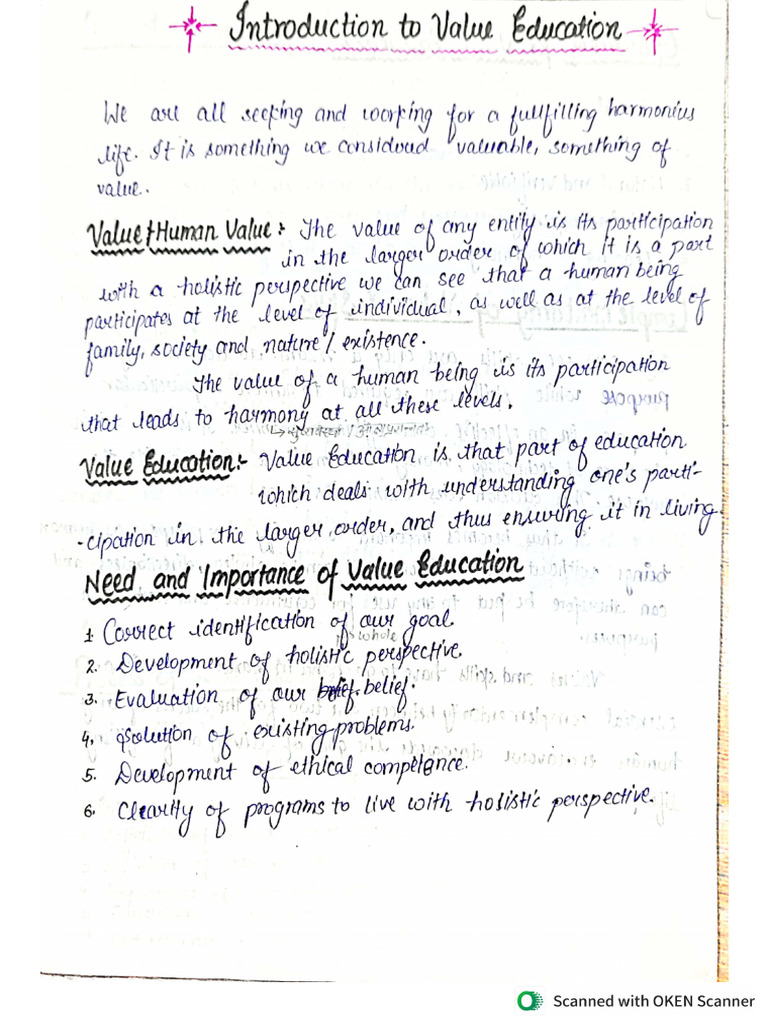 Introduction to Value Education
We are all seeking and working for a fullfilling harmonius
life. It is something we considved valuable, something of
value.
Value / Human Value :- The value of any entity is its participation
in the larger order of which it is a part
with a holistic perspective we can see that a human being
participates at the level of individual, as well as at the level of
family, society and nature / existence.
The value of a human being is its participation
that leads to harmony at all these levels.
Value Education:- Value Education is that part of education
which deals with understanding one's parti-
-cipation in the larger order, and thus ensuring it in living
Need and Importance of Value Education
1. Correct identification of our goal.
whole
2. Development of holistic perspective.
3. Evaluation of our belief.
4. Solution of existing problems.
5. Development of ethical competance.
6. Clearity of programs to live with holistic perspective.
Scanned with OKEN Scanner